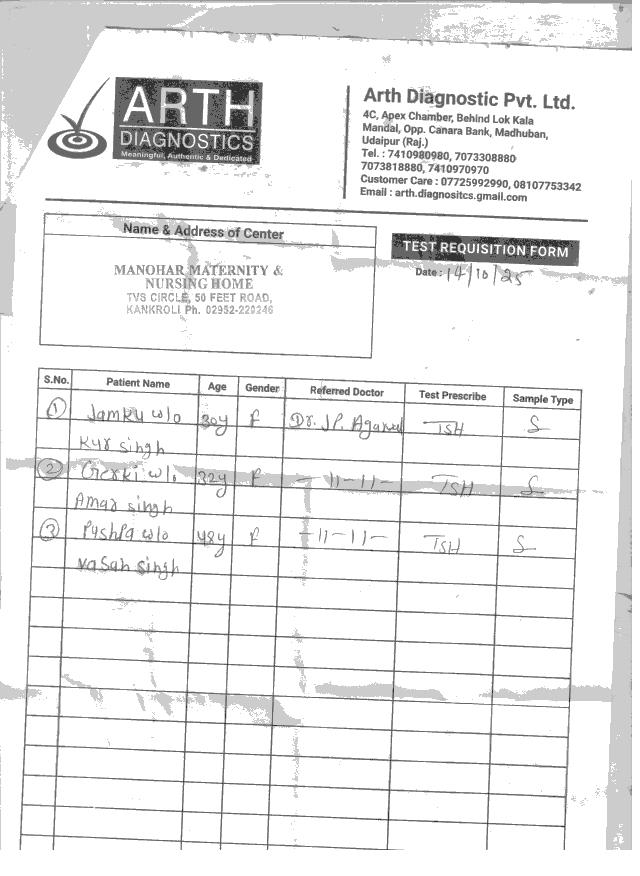 ARTH
DIAGNOSTICS
Meaningful, Authentic & Dedicated
Arth Diagnostic Pvt. Ltd.
4C, Apex Chamber, Behind Lok Kala
Mandal, Opp. Canara Bank, Madhuban,
Udaipur (Raj.)
Tel. : 7410980980, 7073308880
7073818880, 7410970970
Customer Care : 07725992990, 08107753342
Email : arth.diagnositcs.gmail.com
Name & Address of Center
MANOHAR MATERNITY &
NURSING HOME
TVS CIRCLE, 50 FEET ROAD,
KANKROLI Ph. 02952-220246
TEST REQUISITION FORM
Date: 14/10/25
S.No. Patient Name Age Gender Referred Doctor Test Prescribe Sample Type
1 Jamku w/o 30y F Dr. J.P. Agarwal TSH S
singh
2 w/o 32y F -11-11- TSH S
Amar singh
3 Pushpa w/o 48y F -11-11- TSH S
singh